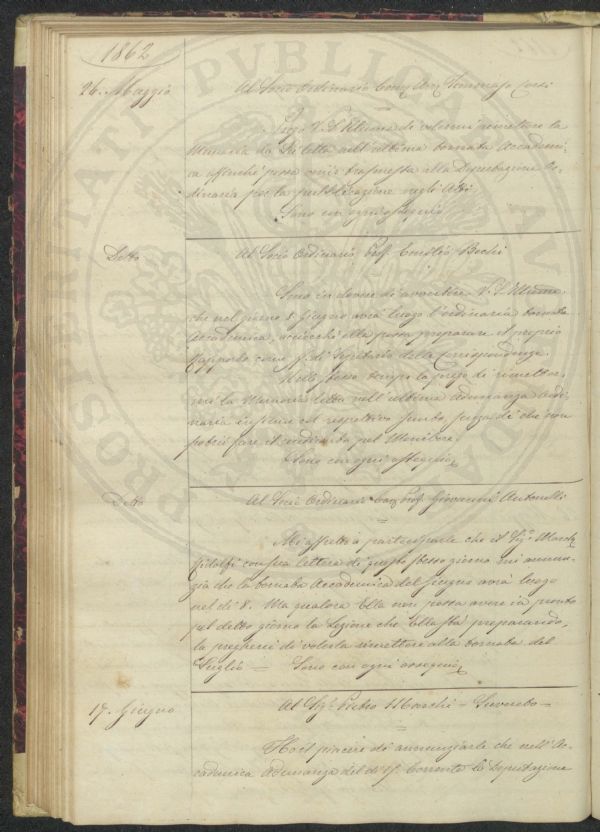 1862
26. Maggio
Al Socio Ordinario Comm. Avv. Tommaso Corsi
Prego V. S. Illma di volermi rimettere la
Memoria da Lei letta nell'ultima tornata Accademi-
ca affinché possa venir trasmessa alla Deputazione Or-
dinaria per la pubblicazione negli Atti.
Sono con ogni ossequio
Detto
Al Socio Ordinario Prof. Emilio Bechi
Sono in dovere di avvertire V. S. Illma
che nel giorno 8 Giugno avrà luogo l'ordinaria tornata
Accademica, acciocché ella possa preparare il proprio
rapporto come f. di Segretario delle corrispondenze.
Nello stesso tempo la prego di rimetter-
mi la Memoria letta nell'ultima adunanza ordi-
naria insieme col respettivo sunto, senza di che non
potrei fare il rendiconto pel Monitore.
Sono con ogni ossequio
Detto
Al Socio Ordinario Cav. Prof. Giovanni Antonelli
Mi affretto a parteciparle che il Sig. March.
Ridolfi con sua lettera di questo stesso giorno mi annun-
zia che la tornata Accademica del Giugno avrà luogo
nel dì 8. Ma qualora Ella non possa avere in pronto
pel detto giorno la Lezione che Ella sta preparando,
la pregherei di volerla rimettere alla tornata del
Luglio = Sono con ogni ossequio
17. Giugno
Al Sig. Pietro Marchi =
Ho il piacere di annunziarle che nell'Ac-
cademica Adunanza del dì corrente la Deputazione
PROSPERITATI PVBLICAE AV